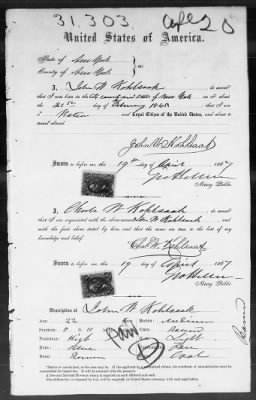 31.303
United States of America.
State of New York
County of New York
I, John W Kohlsaat, do swear
that I was born in the City county and State of New York on or about
the 21st day of February 1845; that I am
a Native and Loyal Citizen of the United States, and about to
travel abroad.
John W Kohlsaat
Sworn to before me, this 19th day of April 1867
Notary Public.
I, Charles W. Kohlsaat, do swear
that I am acquainted with the above-named John W Kohlsaat, and
with the facts above stated by him, and that the same are true to the best of my
knowledge and belief.
Chas W. Kohlsaat
Sworn to before me, this 19 day of April 1867
Notary Public.
Description of John W Kohlsaat
Age: 22
Mouth: Medium
Stature: 5 11
Chin: Round
Forehead: High
Hair: Light
Eyes:
Complexion:
Nose: Roman
Face: Oval